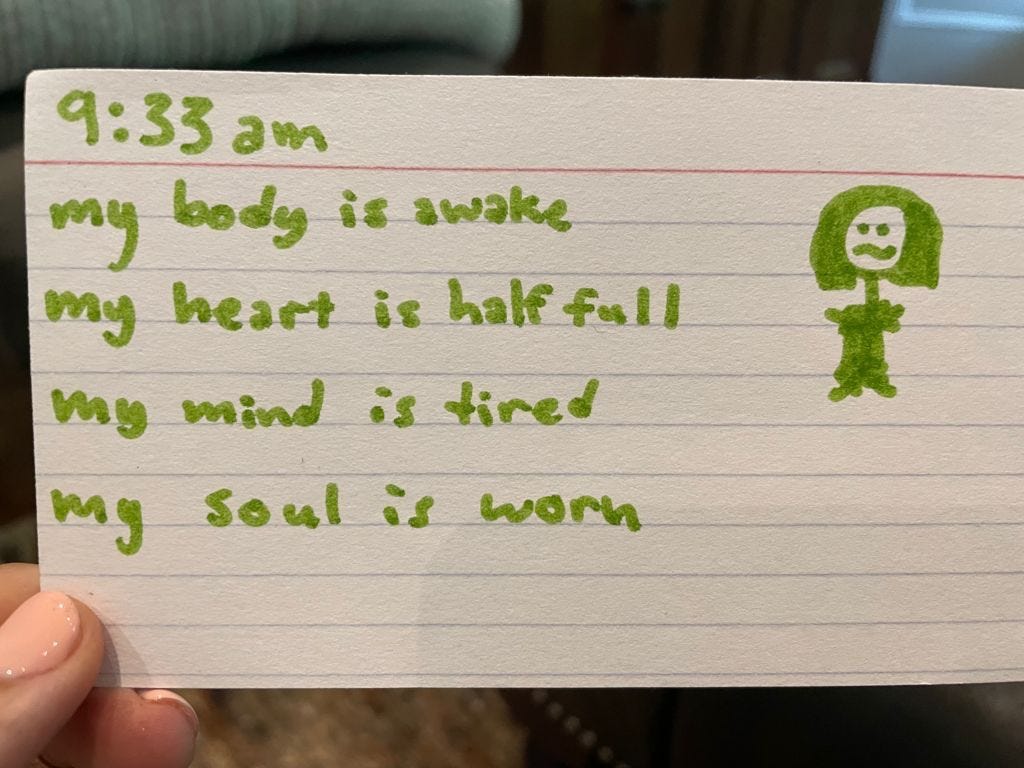 9:33 am
my body is awake
my heart is half full
my mind is tired
my soul is worn